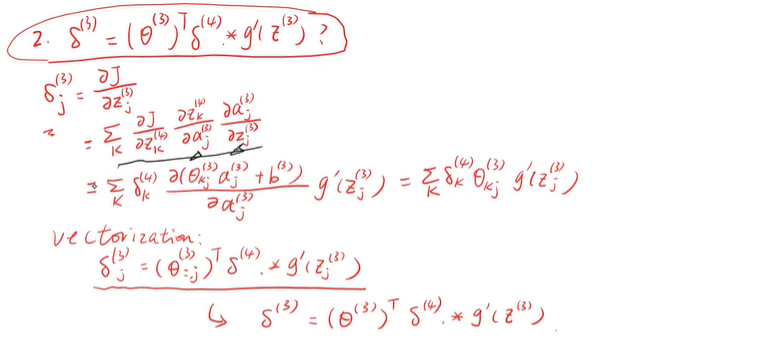 2. δ⁽³⁾ = (θ⁽³⁾)ᵀ δ⁽⁴⁾ .* g'(z⁽³⁾) ?
δⱼ⁽³⁾ = ∂J / ∂zⱼ⁽³⁾
= Σ_K ∂J/∂z_K⁽⁴⁾ ∂z_K⁽⁴⁾/∂aⱼ⁽³⁾ ∂aⱼ⁽³⁾/∂zⱼ⁽³⁾
= Σ_K δ_K⁽⁴⁾ ∂(θ_Kj⁽³⁾ aⱼ⁽³⁾ + b⁽³⁾)/∂aⱼ⁽³⁾ g'(zⱼ⁽³⁾) = Σ_K δ_K⁽⁴⁾ θ_Kj⁽³⁾ g'(zⱼ⁽³⁾)
vectorization:
δⱼ⁽³⁾ = (θ_:,j⁽³⁾)ᵀ δ⁽⁴⁾ .* g'(zⱼ⁽³⁾)
↳ δ⁽³⁾ = (θ⁽³⁾)ᵀ δ⁽⁴⁾ .* g'(z⁽³⁾).